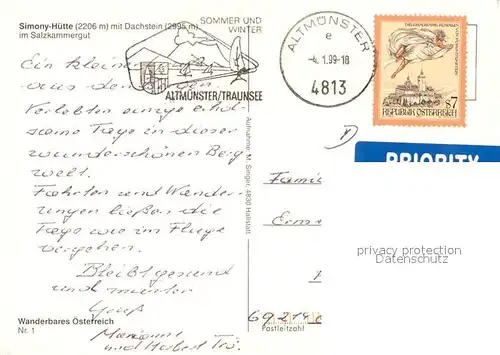 Simony-Hütte (2206 m) mit Dachstein (2995 m)
im Salzkammergut
SOMMER UND
WINTER
ALTMÜNSTER/TRAUNSEE
ALTMÜNSTER
e
-4. 1.99-18
4813
S7
REPUBLIK ÖSTERREICH
PRIORITY
Ein kleiner
aus den
Verlebten einige erhol-
same Tage in dieser
wunderschönen Berg
welt.
Fahrten und Wander-
ungen ließen die
Tage wie im Fluge
vergehen.
Bleibt gesund
und munter
Gruß
Marianne
und Herbert
Aufnahme: M. Singer, 4830 Hallstatt
D
Famil
privacy protection
Datenschutz
69214
Postleitzahl
Wanderbares Österreich
Nr. 1